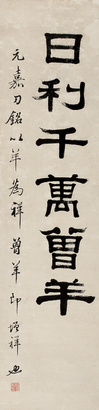 日利千萬曾羊
元嘉刀銘以羊為祥曾羊即增祥